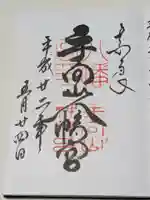 奉拝
手向山八幡宮
平成廿二年
五月廿四日